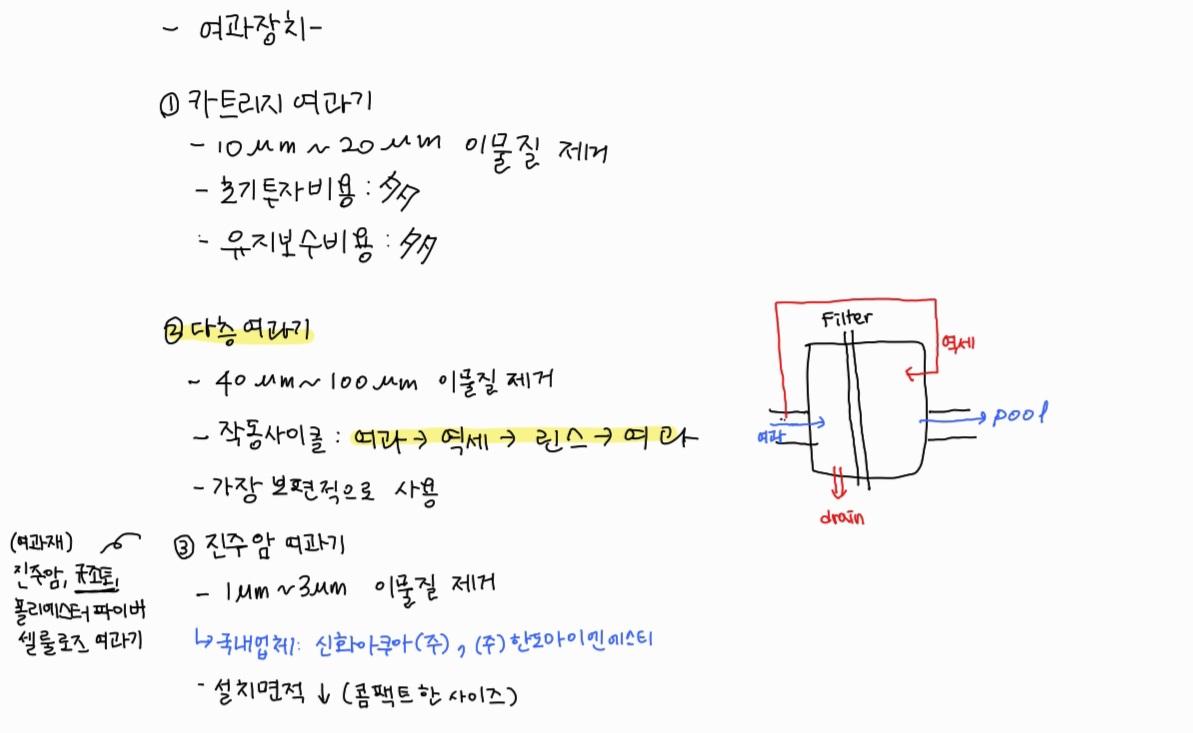 - 여과장치-
① 카트리지 여과기
- 10μm ~ 20μm 이물질 제거
- 초기투자비용 : 多
- 유지보수비용 : 多
② 다층여과기
- 40μm ~ 100μm 이물질 제거
- 작동사이클 : 여과 → 역세 → 린스 → 여과
- 가장 보편적으로 사용
Filter
역세
여과
pool
drain
③ 진주암 여과기
- 1μm ~ 3μm 이물질 제거
↳ 국내업체: 신화아쿠아(주), (주)한도아이엔에스티
- 설치면적 ↓ (콤팩트한 사이즈)
(여과재)
진주암, 규조토,
폴리에스터 파이버
셀룰로즈 여과기